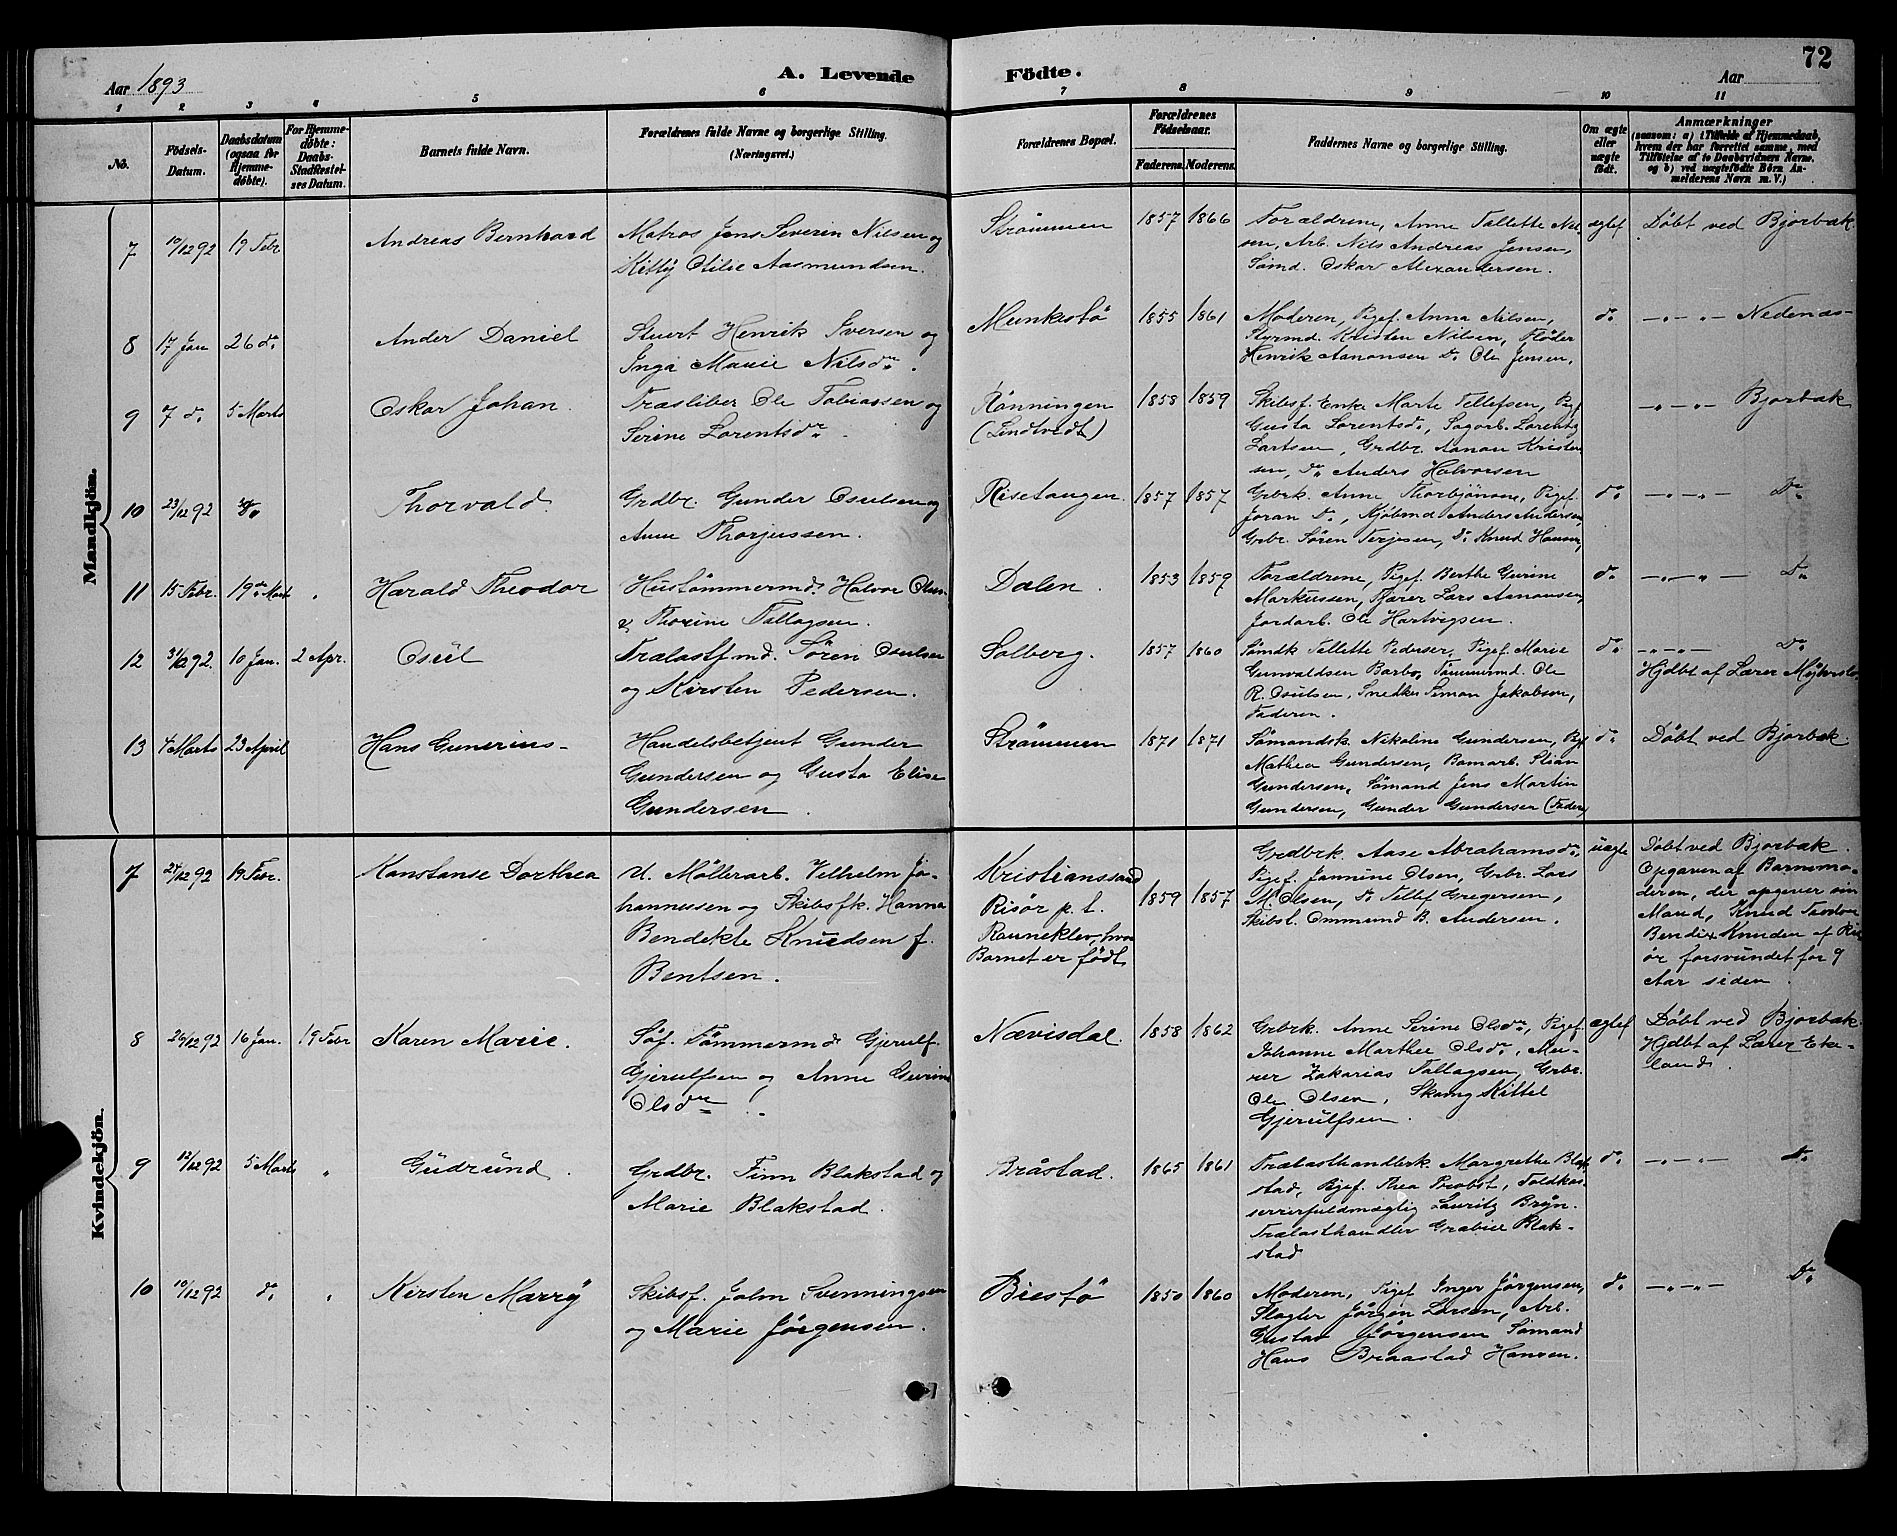 72
Aar 1893
A. Levende Födte.
Aar
1 2 3 4 5 6 7 8 9 10 11
No.
Fødsels-
Datum.
Daabsdatum
(ogsaa for
Hjemme-
døbte).
For Hjemme-
døbte:
Daabs-
Stadfæstel-
ses Datum.
Barnets fulde Navn.
Forældrenes fulde Navne og borgerlige Stilling.
(Næringsvei.)
Forældrenes Bopæl.
Forældrenes
Fødselsaar.
Faderens. Moderens.
Faddernes Navne og borgerlige Stilling.
Om ægte
eller
uægte
født.
Anmærkninger
(saasom: a) i Tilfælde af Hjemmedaab,
hvem der har forrettet samme, med
Tilføielse af to Daabsvidners Navne,
og b) ved uægtefødte Børn An-
melderens Navn m. V.)
Mandkjön.
7 10/12 92 19 Febr Andreas Bernhard
Matros Jens Severin Nilsen og
Kitty Otilie Aasmundsen.
Strømmen 1857 1866
Forældrene, Anne Tallette Nil-
sen, Arb. Nils Andreas Jensen,
Sømd. Oskar Alexandersen.
ægtef Döbt ved Bjorbæk
8 17 Jan 26 do Ander Daniel
Stuert Henrik Iversen og
Inga Marie Nilsdr.
Munkestø 1855 1861
Moderen, Pigef. Anna Nilsen,
Styrmd. Kristen Nilsen, Fløder
Henrik Aanonsen do Ole Jensen,
do — „ — „ — Nedenæs-
9 7 do 5 Marts Oskar Johan.
Træsliber Ole Tobiassen og
Serine Lorentsdr.
Rønningen
(Lindtvedt)
1858 1859
Skibsf. Enke Marte Tellefsen, Pgf
Gusta Lorentsdr, Sagarb. Lorentz
Lartsen, Grdbr. Aanon Kristen
sen, do Anders Halvorsen
— „ — „ — Bjorbæk
10 23/12 92 do Thorvald.
Grdbr. Gunder Osulsen og
Anne Thorjussen.
Risetangen. 1857 1857
Grbrk. Anne Thorbjönsen, Pigef.
Joran do, Kjöbmd Anders Andersen,
Grbr. Sören Terjesen, do Knud Hansen,
do — „ — „ — Do
11 15 Febr. 19de Mart „ Harald Theodor
Hustømmermd. Halvor Olsen
& Thorine Tallagsen.
Dalen. 1853 1859
Forældrene, Pigef. Berthe Gurine
Markussen, Fjærer Lars Aanonsen,
Jordarb. Ole Hartvigsen.
do — „ — „ — Do
12 31/12 92. 10 Jan. 2 Apr. Osül
Trælastfmd. Søren Osulsen
og Kirsten Pedersen.
Solberg. 1857 1860
Sømdk Tellette Pedersen, Pigef. Marie
Gunvaldsen Barbo, Tømmermd. Ole
R. Osulsen, Snedker Simon Jakobsen,
Faderen.
do — „ — „ — Do
Hjdbt af Lærer
13 4 Marts 23 April Hans Gunerius-
Handelsbetjent Gunder
Gundersen og Gusta Elise
Gundersen.
Strømmen 1871 1871
Sömandsk. Nikoline Gundersen, Pgf
Mathea Gundersen, Bomarb. Stian
Gundersen, Sömand Jens Martin
Gundersen, Gunder Gundersen (Faderen)
do Döbt ved Bjorbæk.
Kvindekjön.
7 24/12 92 19 Febr. Konstanse Dorthea
U. Möllerarb. Velhelm Jo-
hannessen og Skibsfk. Hanna
Bendekte Knüdsen f.
Bentsen.
Kristianssand
Risör p. t.
Rauneklev, hvor
Barnet er födt.
1859 1857
Grdbrk. Aase Abrahamsdr,
Pigef. Jannine Olsen, Grbr. Lars
M. Olsen, do Tellef Gregersen,
Skibst. Ommund B. Andersen.
uægte
Döbt ved Bjorbæk.
Opgaven af Barnemo-
deren, der opgiver sin
Mand, Knud Teodor
Bendix Knudsen af Ris
ör forsvundet for 9
Aar siden.
8 26/12 92 16 Jan. 19 Febr Karen Marie.
Søf. Tömmermd Gjerulf
Gjerulfsen og Anne Gurine
Olsdr
Nævisdal. 1858 1862
Grbrk. Anne Serine Olsdr, Pigef.
Johanne Marthee Olsdr, Mu-
rer Zakarias Tallagsen, Grbr.
Ole Olsen, Skomg Kittel
Gjerulfsen.
ægtef Döbt ved Bjorbæk.
Hjdbt af Lærer Eke-
land.
9 12/12 92 5 Marts „ Güdründ.
Grdbr. Finn Blakstad og
Marie Blakstad.
Bråstad. 1865 1861
Trælasthandlerk Margrethe Blak
stad, Pgef. Thea Probst, Toldkas
sererfuldmægtig Lauritz Brÿn.
Trælasthandler Grabiel Blak-
stad
do — „ — „ — Do
10 10/12 92 do „ Kirsten Marrÿ
Skibsf. John Svenningsen
og Marie Jörgensen.
Biestø 1850 1860
Moderen, Pigef Inger Jörgensen,
Slagter Jörgen Larsen, Arb.
Gustav Jörgensen Sömand
Hans Braastad Hansen.
do — „ — „ — Do